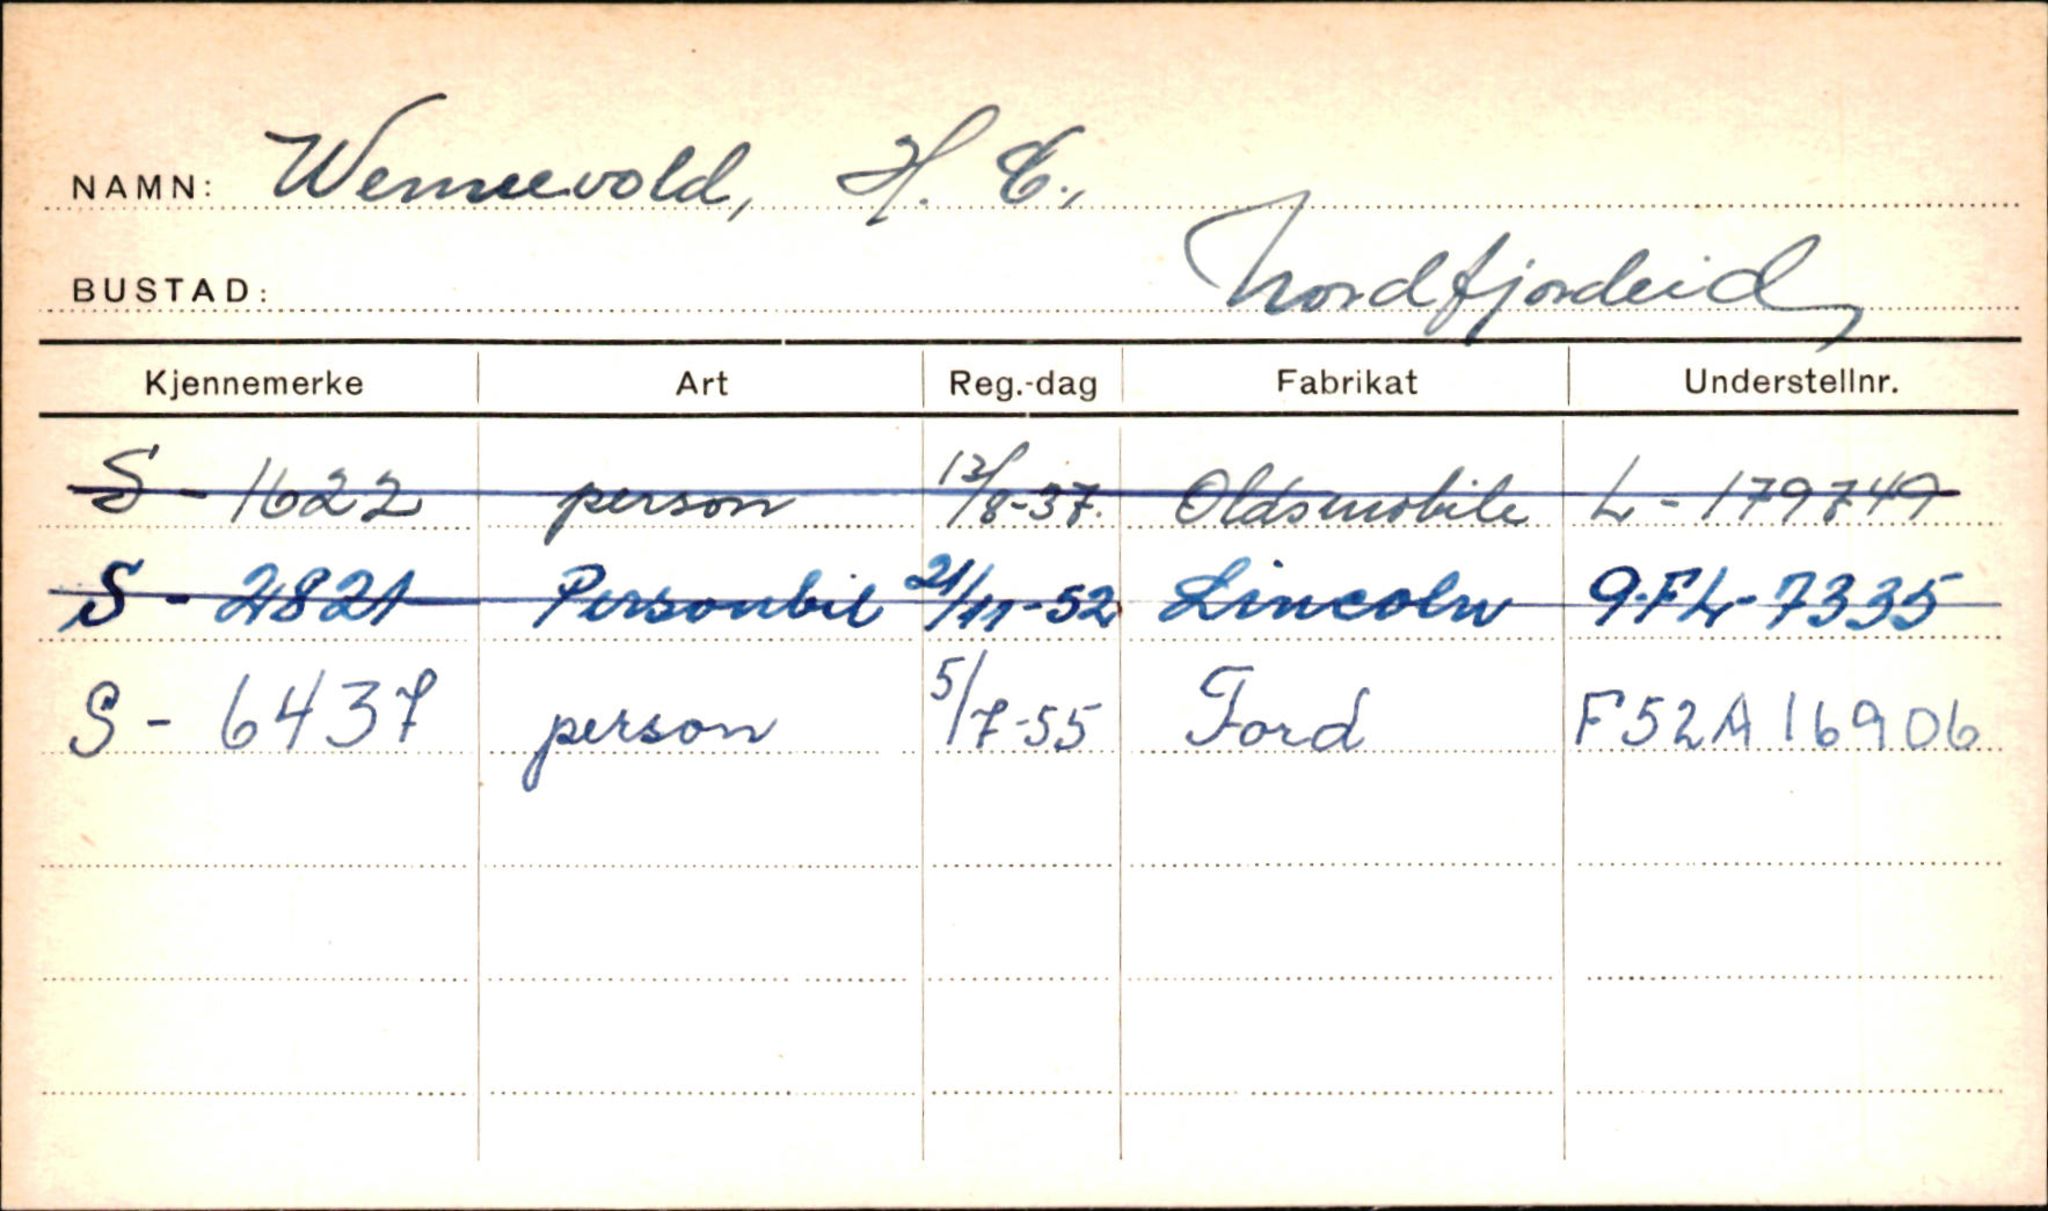 NAMN: Wennevold, H. E.,
BUSTAD: Nordfjordeid
Kjennemerke Art Reg.-dag Fabrikat Understellnr.
S - 1622 person 12/8-37. Oldsmobile L - 179749
S - 2821 Personbil 21/11-52 Lincoln 9.FL-7335
S - 6437 person 5/7-55 Ford F52A16906